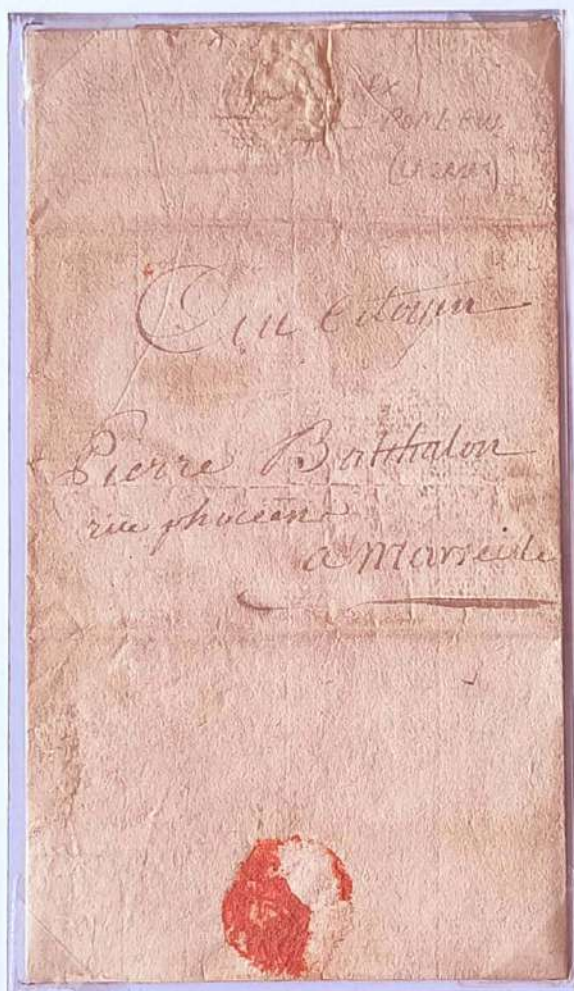 ex
Au Citoyen
Pierre Batthalon
rue phocéene
a Marseille